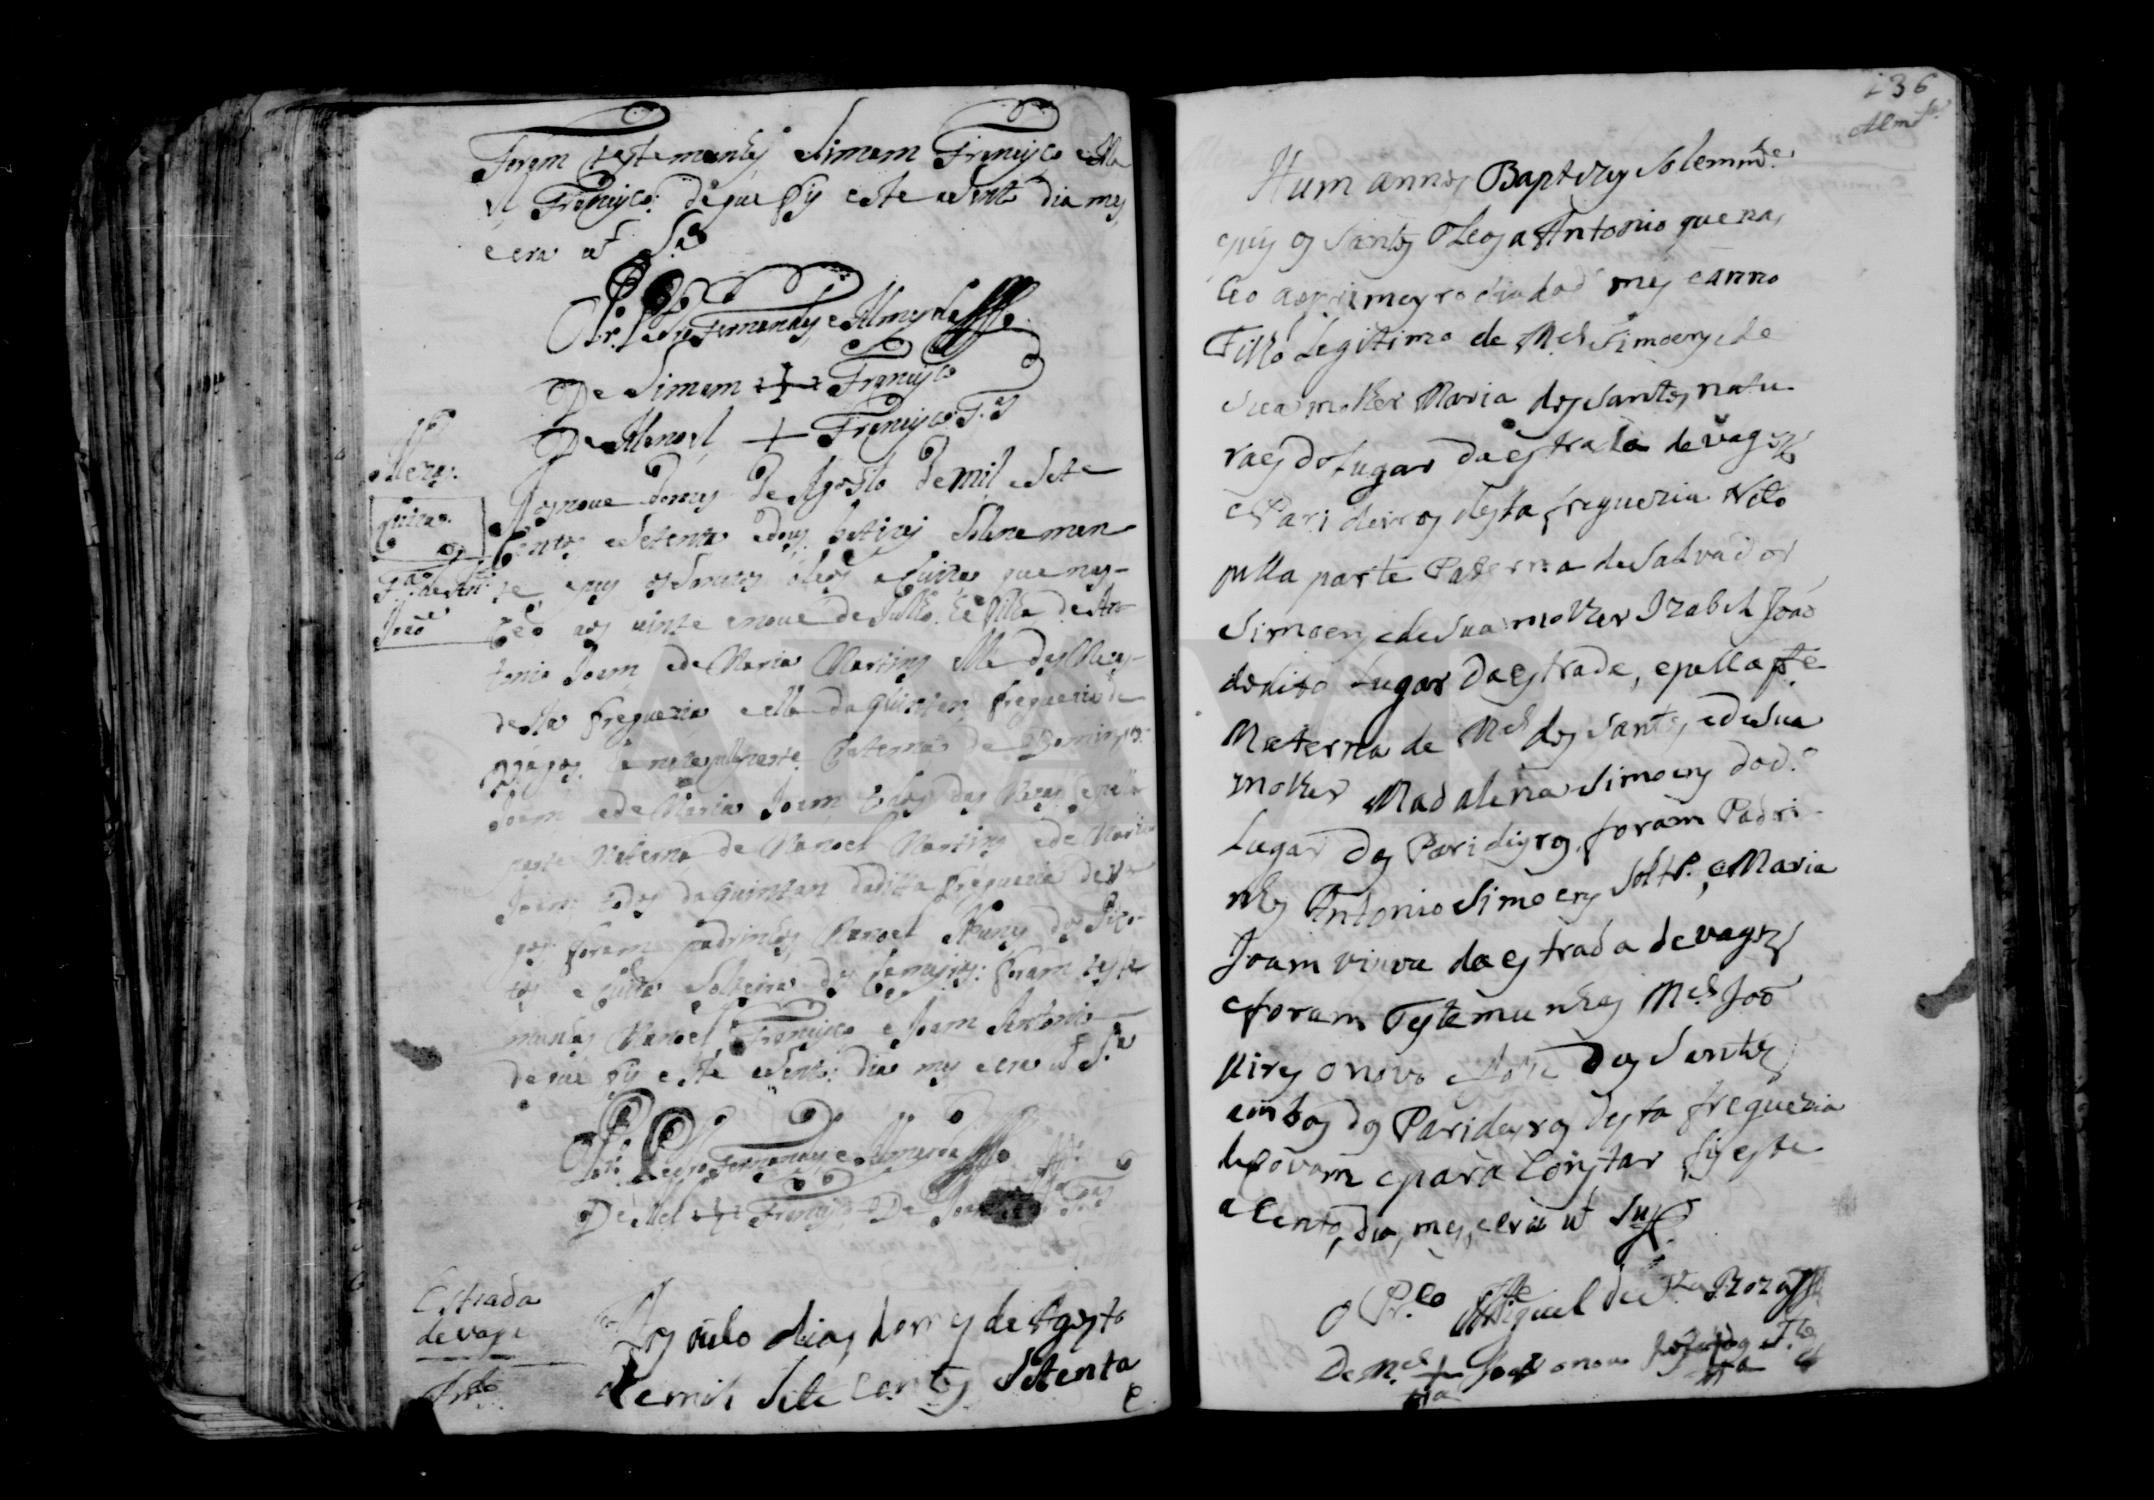 Foram testemunhas Simam Francisco e Ma
el Francisco: de que fis este asento dia mes,
e era ut S.ª
O Pr. Pedro Fernandes e Almeyda
De Simam + Francisco
De Manoel + Francisco T.ᵃˢ
Mezas:
Quitra.
F.ª de Ant.º
Joaõ
Aos nove do mes de Agosto de mil e Sete
centos e Setenta e dous batizei Solenemen
te e pus os Santos óleos a Quitra que nas-
ceo aos vinte e nove de Julho he filha de An-
tonio Joam e de Maria Martins elle das Mezas
desta freguezia e ella da Quintan freguezia de
Vagos. he neta pella parte Paterna de Domingos
Joam e de Maria Joam todos das Mezas e pella
parte Materna de Manoel Martins e de Maria
Joam todos da Quintan da dita freguezia de Va-
gos foram padrinhos Manoel Nunes
e Quitra Solteira foram teste
munhas Manoel Francisco e Joam Antonio
de que fis este asento dia mes e era ut S.ª
O Pr. Pedro Fernandes e Almeyda
De Mel + Francisco De Joam T.ᵃˢ
Estrada
de vagos
Ant.º
Aos outo dias do mes de Agosto
de mil sete centos Setenta
e
136
Alm.ᵈᵃ
Hum annos Baptizey Solemm.ᵉ
e puz os Santos oLeos a Antonio que nas
ceo ao primeyro dia do d.º mes e anno
Filho Legitimo de M.ᵉˡ Simoens e de
sua molher Maria dos Santos, natu-
raes do Lugar da estrada de vagos
e Parideiros desta freguezia Neto
pella parte Paterna de Salvador
Simoens e de Sua molher Izabel Joaõ
do dito Lugar da estrada, e pella p.ᵗᵉ
Materna de M.ᵉˡ dos Santos e de Sua
molher Madalena Simoens do d.º
Lugar dos Parideyros, foram Padri-
nhos Antonio Simoens Solt.º, e Maria
Joam viuva da estrada de vagos
e foram Testemunhas M.ᵉˡ Joaõ
pires o novo e dos Santos
ambos dos Parideyros desta freguezia
de Covam e para Constar fis este
aCento, dia, mes, e era ut Supª
O Pr.ᶜᵒ Miguel da Roza
De M.ᵉˡ + Joaõ o novo T.ᵃˢ